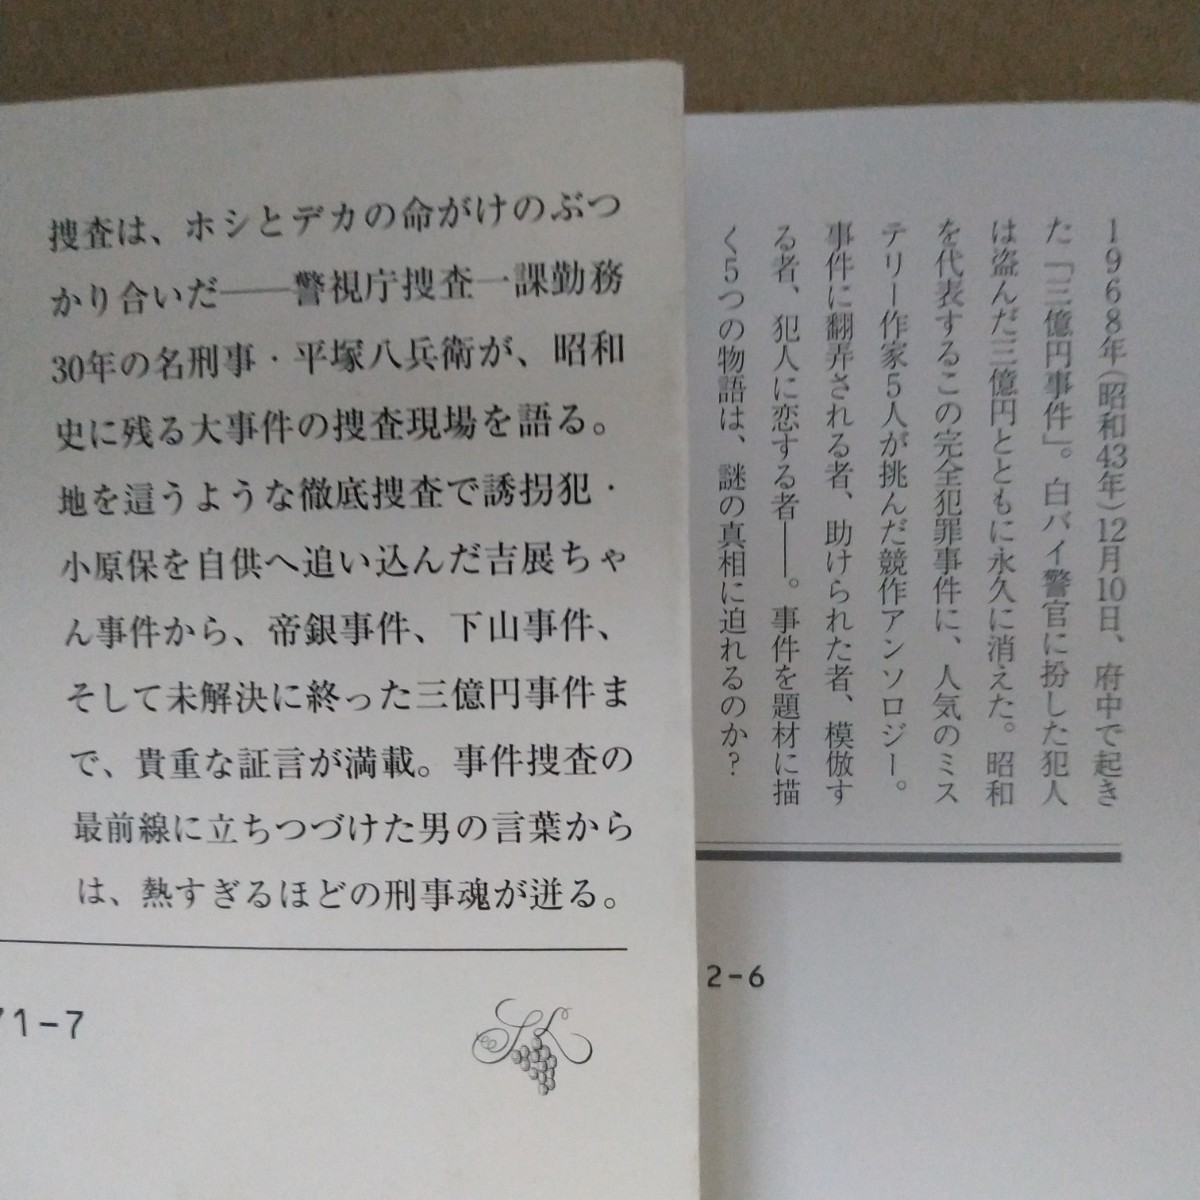 捜査は、ホシとデカの命がけのぶつ
かり合いだ――警視庁捜査一課勤務
30年の名刑事・平塚八兵衛が、昭和
史に残る大事件の捜査現場を語る。
地を這うような徹底捜査で誘拐犯・
小原保を自供へ追い込んだ吉展ちゃ
ん事件から、帝銀事件、下山事件、
そして未解決に終った三億円事件ま
で、貴重な証言が満載。事件捜査の
最前線に立ちつづけた男の言葉から
は、熱すぎるほどの刑事魂が迸る。
71-7
1968年(昭和43年)12月10日、府中で起き
た「三億円事件」。白バイ警官に扮した犯人
は盗んだ三億円とともに永久に消えた。昭和
を代表するこの完全犯罪事件に、人気のミス
テリー作家5人が挑んだ競作アンソロジー。
事件に翻弄される者、助けられた者、模倣す
る者、犯人に恋する者――。事件を題材に描
く5つの物語は、謎の真相に迫れるのか?
2-6